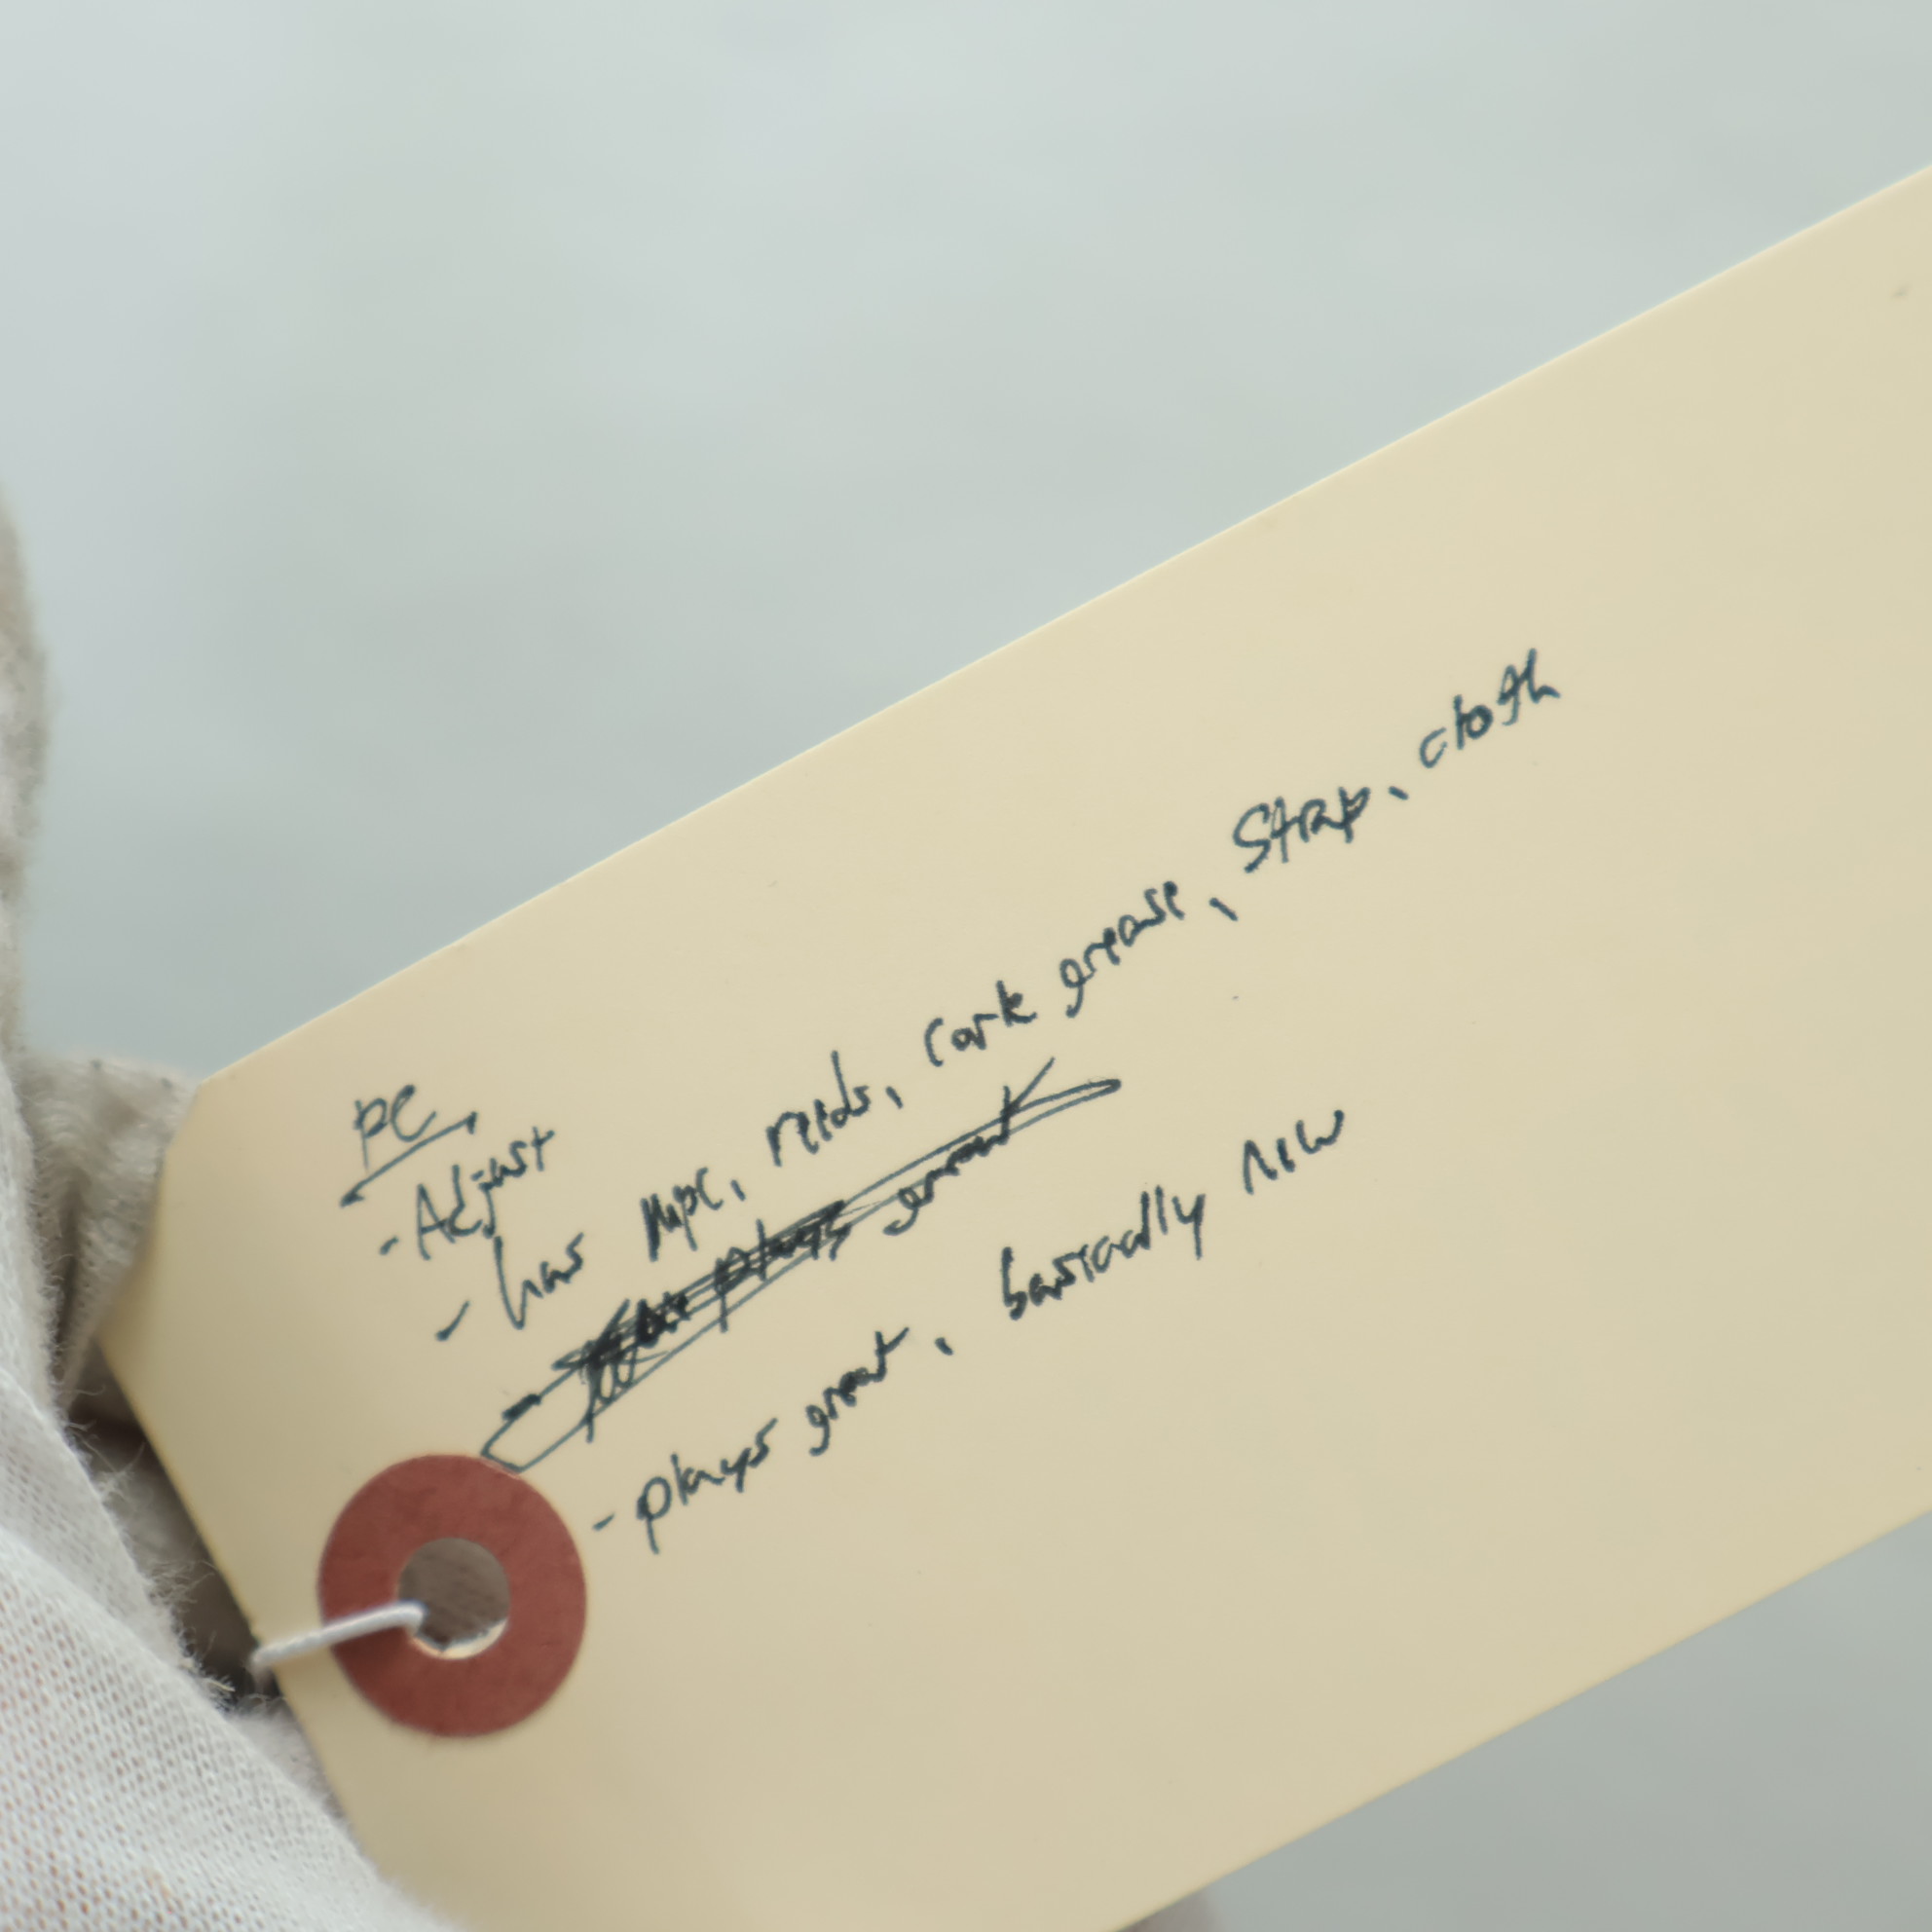 PC
- Adjust
- has mpc, reeds, cork grease, strap, cloth
plays great
- plays great, basically new